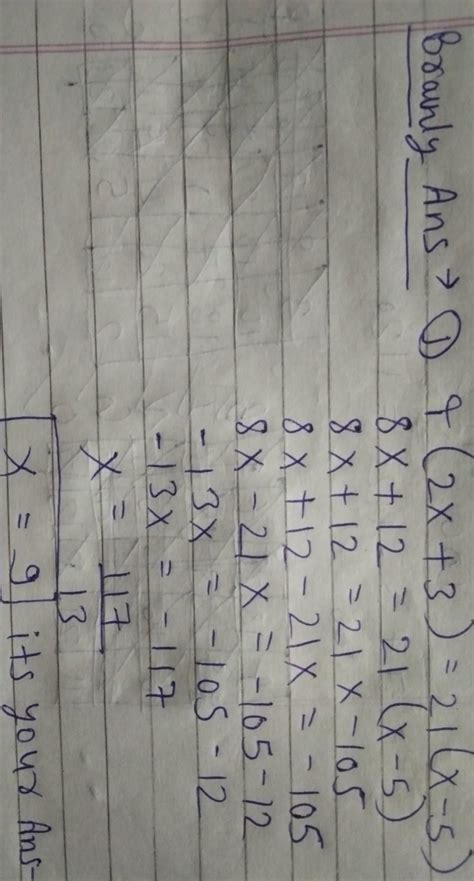 Brainly Ans → ① 4(2x+3) = 21(x-5)
8x+12 = 21(x-5)
8x+12 = 21x-105
8x+12-21x = -105
8x-21x = -105-12
-13x = -105-12
-13x = -117
x = 117/13
x = 9 its your Ans-